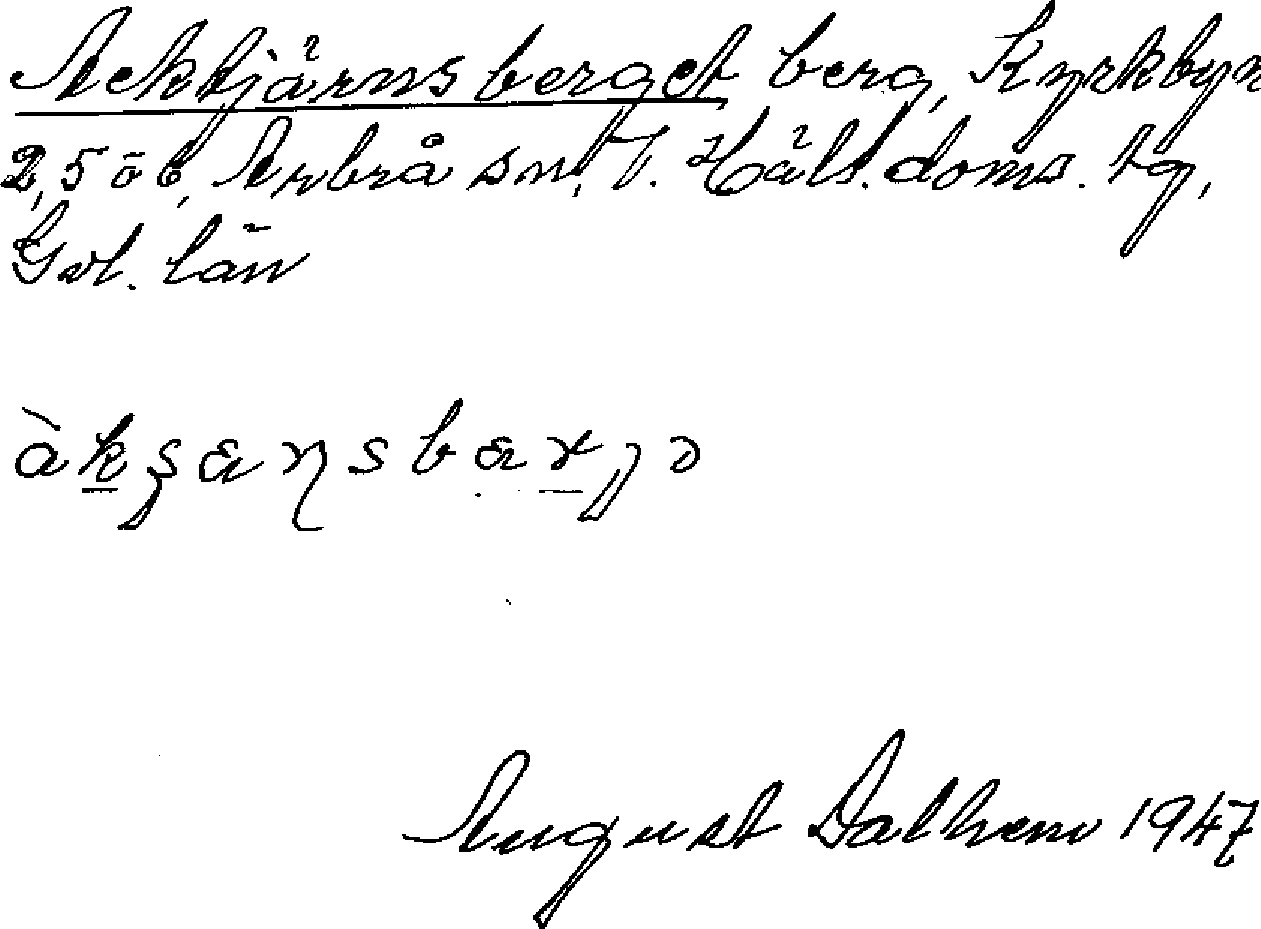 Acktjärnsberget berg, Kyrkbyn
2,5 ö b, Arbrå sn, V. Häls. doms. tg,
Gvl. län
August Dalhem 1947